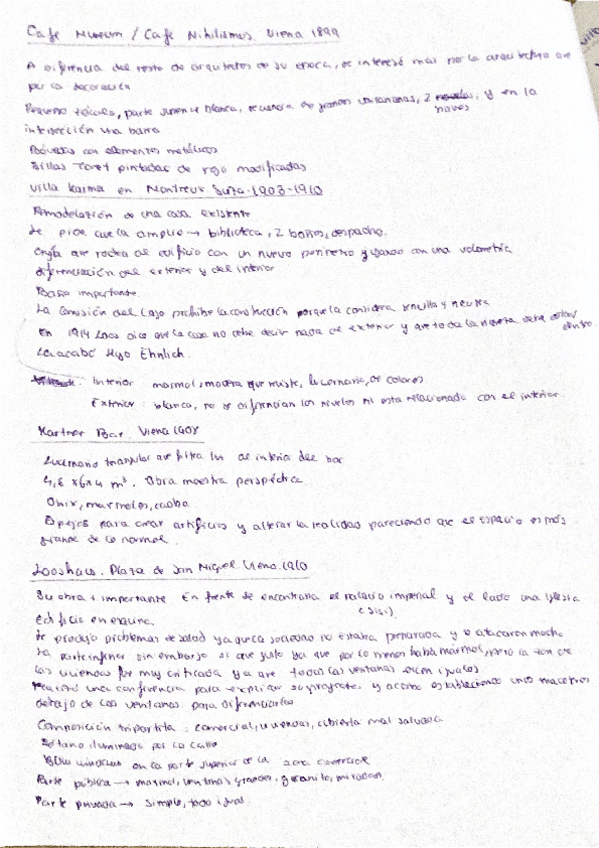 Cafe Museum / Cafe Nihilismus Viena 1899
A diferencia del resto de arquitectos de su época, se interesó mas por la arquitectura que
por la decoración
parte superior blanca, de grandes ventanas, 2 naves y en la
intersección una barra
Bóvedas con elementos metálicos
Sillas Tonet pintadas de rojo modificadas
Villa Karma en Montreux Suiza. 1903-1910
Remodelación de una casa existente
Se pide que la amplie → biblioteca, 2 baños, despacho.
que rodea al edificio con un nuevo perimetro y jugando con una volumetría
diferenciación del exterior y del interior
Baño importante.
La Comisión del Lago prohibe la construcción porque la considera sencilla y neutra
En 1914 Loos dice que la casa no debe decir nada de exterior y que toda la riqueza debe estar
dentro.
La acabó Hugo Ehrlich.
Interior: marmol, madera que reviste, lucernario, de colores
Exterior: blanca, no se diferencian los niveles ni esta relacionado con el interior.
Kartner Bar. Viena 1908
Lucernario triangular que filtra luz al interior del bar
m³. Obra maestra
Onix, marmoles, caoba
Espejos para crear artificios y alterar la realidad pareciendo que el espacio es más
grande de lo normal.
Looshaus. Plaza de San Miguel Viena. 1910
Su obra + importante En frente se encontraria el palacio imperial y al lado una iglesia
(sisi)
Edificio en esquina.
Le produjo problemas de salud ya que la sociedad no estaba preparada y le atacaron mucho
La parte inferior sin embargo si que gustó ya que por lo menos había mármol, pero la zona de
las viviendas fue muy criticada ya que todas las ventanas eran iguales
una conferencia para explicar su proyecto y acabó estableciendo unos maceteros
debajo de las ventanas para diferenciarlas
Composición tripartita: comercial, viviendas, cubierta
Sótano iluminado por la calle
Bow windows en la parte superior de la zona comercial
Parte pública → marmol, ventanas grandes, granito, mirador
Parte privada → simple, todo igual.